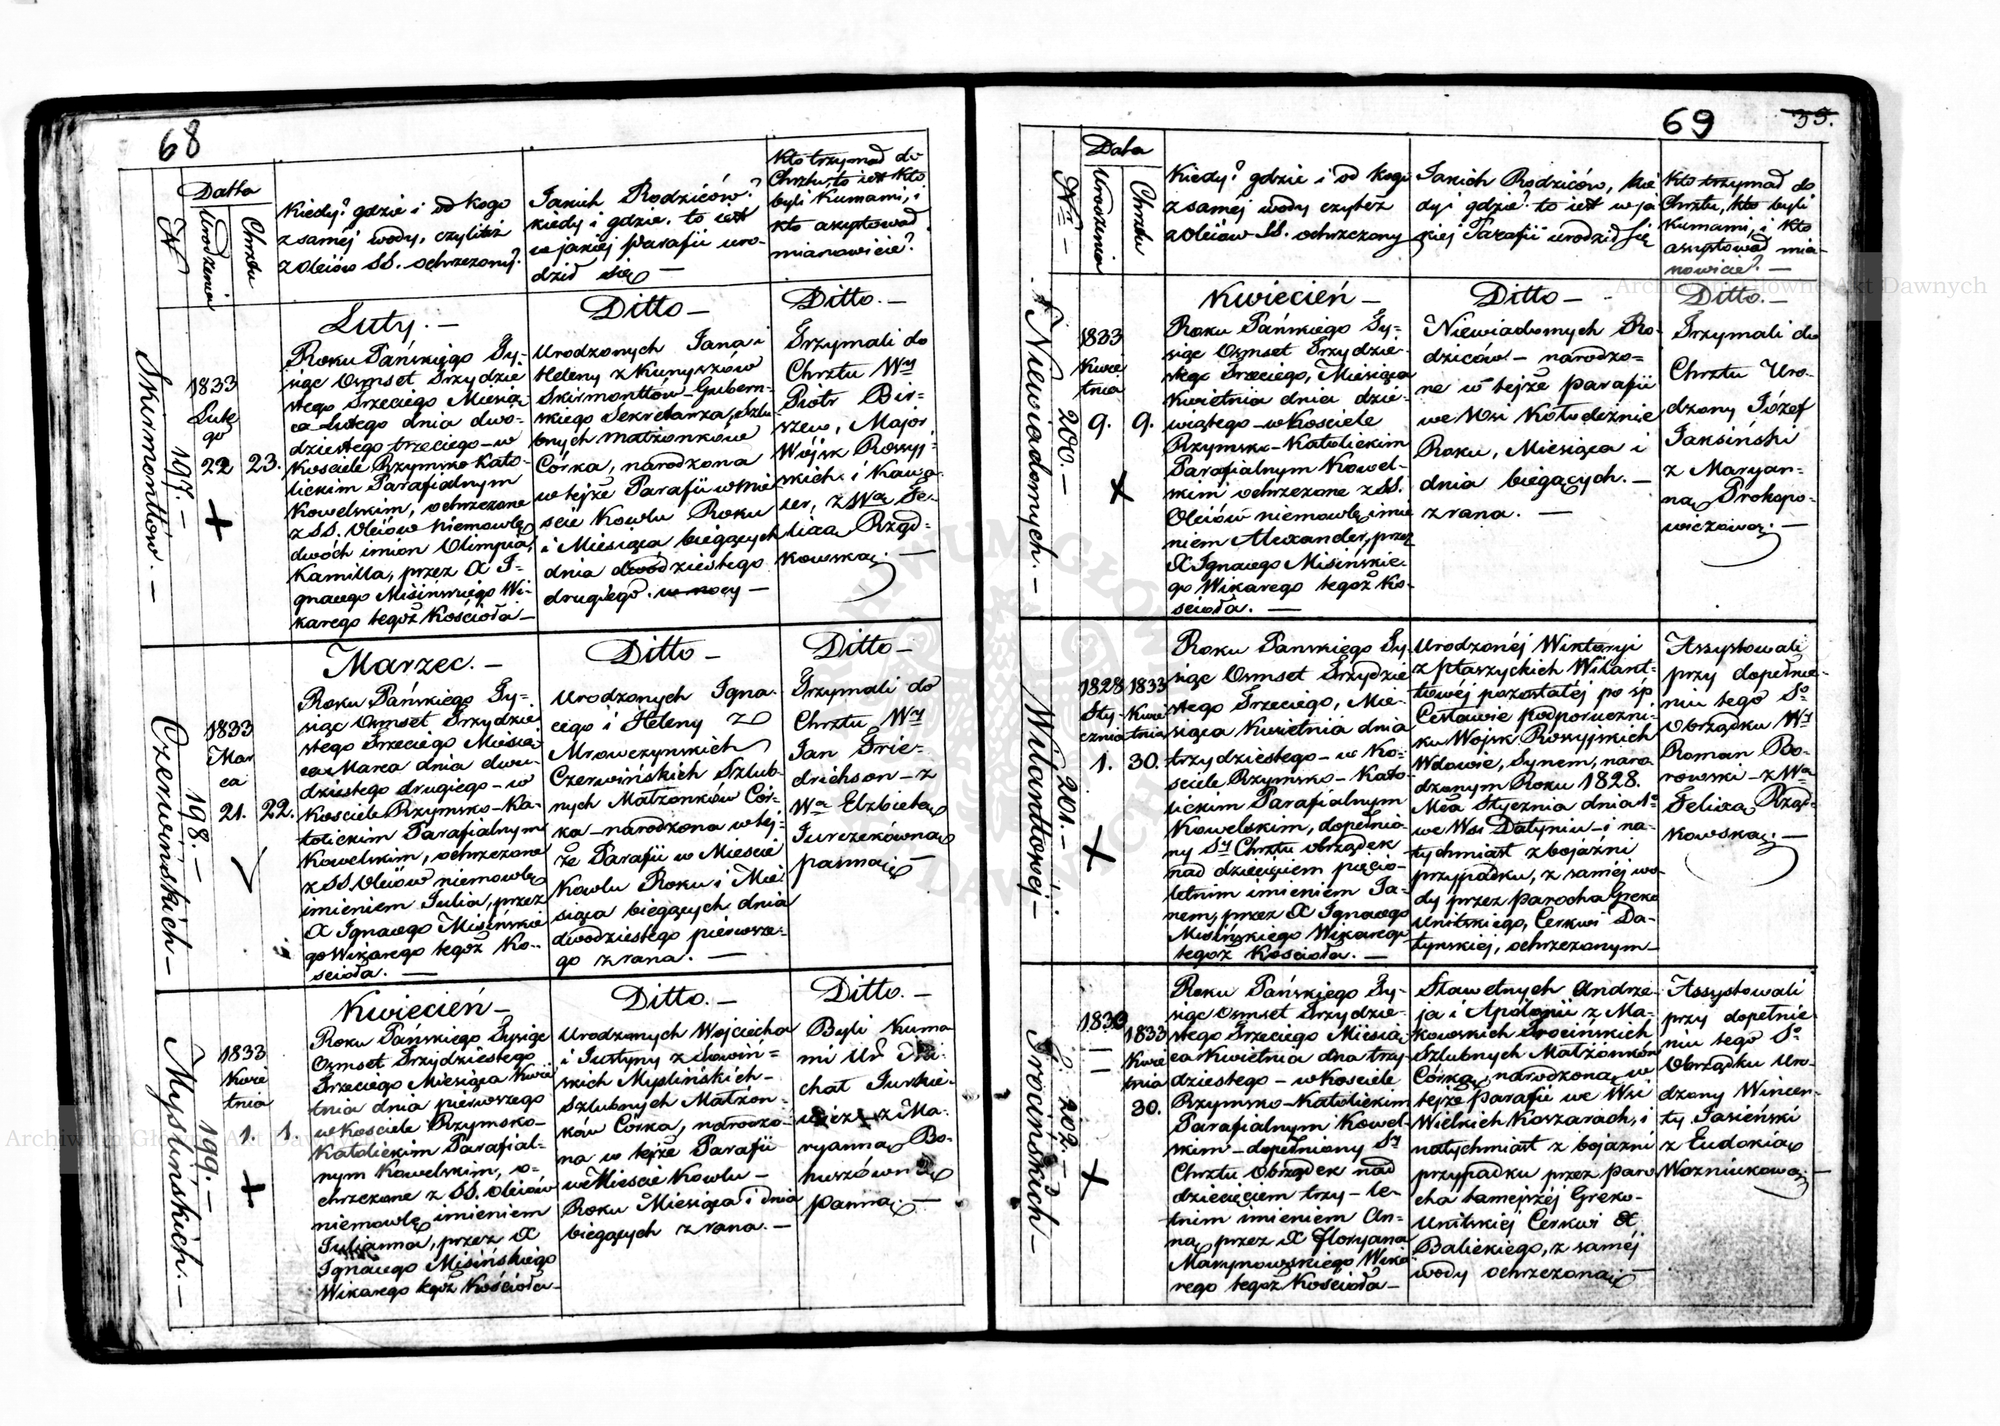 68
Datta
Nr
Urodzenia
Chrztu
Kiedy? gdzie i od kogo
z samej wody, czyliteż
z Oleiów SS. ochrzczony?
Jakich Rodziców?
kiedy i gdzie. to iest
w jakiej parafii uro-
dził się —
Kto trzymał do
Chrztu, to iest kto
byli Kumami, i
kto asystował
mianowicie?
Skirmonttów. —
197. —
1833
Lute
go
22
23.
Luty. —
Roku Pańskiego Ty-
siąc Osmset Trzydzie
stego Trzeciego Miesią
ca Lutego dnia dwo-
dziestego trzeciego – w
Kościele Rzymsko Kato-
lickim Parafialnym
Kowelskim, ochrzczone
z SS. Oleiów Niemowlę
dwóch imion Olimpia,
Kamilla, przez X I-
gnacego Misińskiego Wi-
karego tegoż Kościoła —
Ditto —
Urodzonych Jana i
Heleny z Kunyszów
Skirmonttów – Gubern-
skiego Sekretarza, Szlu
bnych małżonków
Córka, narodzona
w tejże Parafii w Mie
ście Kowlu Roku
i Miesiąca bieżących
dnia dwódziestego
drugiego. w nocy —
Ditto. —
Trzymali do
Chrztu Wny
Piotr Bir-
szew, Major
Wójsk Rossyj-
skich i Kawa-
ler, z Wą Fe-
licią Rząd-
kowską. —
Czerwińskich —
198. —
1833
Mar
ca
21.
22.
Marzec. —
Roku Pańskiego Ty-
siąc Osmset Trzydzie
stego Trzeciego Miesią
ca Marca dnia dwu-
dziestego drugiego – w
Kościele Rzymsko-Ka-
tolickim Parafialnym
Kowelskim, ochrzczone
z SS Oleiów niemowlę
imieniem Julia, przez
X Ignacego Misińskie
go Wikarego tegoż Ko-
ścioła. —
Ditto —
Urodzonych Igna
cego i Heleny z
Mrowczynskich
Czerwińskich Szlub-
nych Małżonków Cór-
ka – narodzona w tej-
że Parafii w Mieście
Kowlu Roku i Mie
siąca bieżących dnia
dwodziestego pierwsze-
go z rana. —
Ditto —
Trzymali do
Chrztu Wny
Jan Frie-
drichson – z
Wą Elżbietą
Jurczekówną
panną —
Myslińskich. —
199. —
1833
Kwie
tnia
1.
1.
Kwiecień —
Roku Pańskiego Tysiąc
Osmset Trzydziestego
Trzeciego Miesiąca Kwie
tnia dnia pierwszego
w Kościele Rzymsko-
Katolickim Parafial-
nym Kowelskim, o-
chrzczone z SS. Oleiów
niemowlę imieniem
Julianna, przez X
Ignacego Misińskiego
Wikarego tegoż Kościoła —
Ditto. —
Urodzonych Wojciecha
i Justyny z Słowiń-
skich Myslińskich –
Szlubnych Małżon-
ków Córka, narodzo-
na w tejże Parafii
w Mieście Kowlu –
Roku Miesiąca i dnia
bieżących z rana. —
Ditto. —
Byli Kuma
mi Ur. Mi-
chał Jurkie-
wicz z Ma-
ryanną Bo-
huszówną
panną. —
69
35.
Data
Nr —
Urodzenia
Chrztu
Kiedy? gdzie i od kogo
z samej wody czyteż
z Oleiów SS. ochrzczony
Jakich Rodziców, kie
dy i gdzie? to iest w ja
kiej Parafii urodził się
Kto trzymał do
Chrztu, kto byli
Kumami, i kto
asystował mia-
nowicie? —
Niewiadomych. —
200. —
1833
Kwie
tnia
9.
9.
Kwiecień —
Roku Pańskiego Ty-
siąc Osmset Trzydzie-
stego Trzeciego, Miesiąca
Kwietnia dnia dzie-
wiątego – w Kościele
Rzymsko – Katolickim
Parafialnym Kowel-
skim ochrzczone z SS.
Oleiów niemowlę imie
niem Alexander, przez
X Ignacego Misińskie
go Wikarego tegoż Ko-
ścioła. —
Ditto —
Niewiadomych Ro-
dziców – narodzo-
ne w tejże parafii
we Wsi Kołodeżnie
Roku, Miesiąca i
dnia bieżących. —
z rana. —
Ditto. —
Trzymali do
Chrztu Uro-
dzony Józef
Jaksiński
z Maryan-
ną Prokopo-
wiczową. —
Wilanttowej —
201. —
1828
Sty-
cznia
1.
1833
Kwie
tnia
30.
Roku Pańskiego Ty
siąc Osmset Trzydzie
stego Trzeciego, Mie-
siąca Kwietnia dnia
trzydziestego – w Ko-
ściele Rzymsko – Kato-
lickim Parafialnym
Kowelskim, dopełnio-
ny Sty Chrztu obrządek
nad dziecięciem pięcio
letnim imieniem Ja-
nem, przez X Ignacego
Misińskiego Wikarego
tegoż Kościoła. —
Urodzonéj Wiktoryi
z Ptaszyckich Wilant-
towéj pozostałéj po śp
Cesławie podporuczni-
ku Wojsk Rossyjskich
Wdowie, Synem, naro
dzonym Roku 1828.
Mca Stycznia dnia 1o
we Wsi Datyniu – i na-
tychmiast z bojaźni
przypadku, z saméj wo
dy przez parocha Greko
Unitskiego, Cerkwi Da-
tyńskiej, ochrzczonym —
Assystowali
przy dopełnie-
niu tego So
Obrządku Wny
Roman Bo-
rowski – z Wą
Felixą Rząd-
kowską. —
Trocińskich —
202. —
1830
1833
Kwie
tnia
30.
Roku Pańskiego Ty-
siąc Osmset Trzydzie-
stego Trzeciego Miesią
ca Kwietnia dna trzy
dziestego – w Kościele
Rzymsko – Katolickim
Parafialnym Kowel-
skim – dopełniony Sty
Chrztu Obrządek nad
dziecięciem trzy – le-
tnim imieniem An-
ną, przez X Floryana
Masynowskiego Wika
rego tegoż Kościoła —
Sławetnych Andrze-
ja i Apolonii z Ma-
kowskich Trocińskich
Szlubnych Małżonków
Córką, narodzoną w
tejże Parafii we Wsi
Wielkich Koszarach, i
natychmiast z bojaźni
przypadku przez paro
cha tamejszéj Greko-
Unitskiej Cerkwi X
Balickiego, z saméj
wody ochrzczoną —
Assystowali
przy dopełnie
niu tego So
Obrządku Uro-
dzony Wincen-
ty Jasieński
z Eudokią
Wozniukową. —
Archiwum Główne Akt Dawnych
Archiwum Główne Akt Dawnych
ARCHIWUM GŁÓWNE AKT DAWNYCH